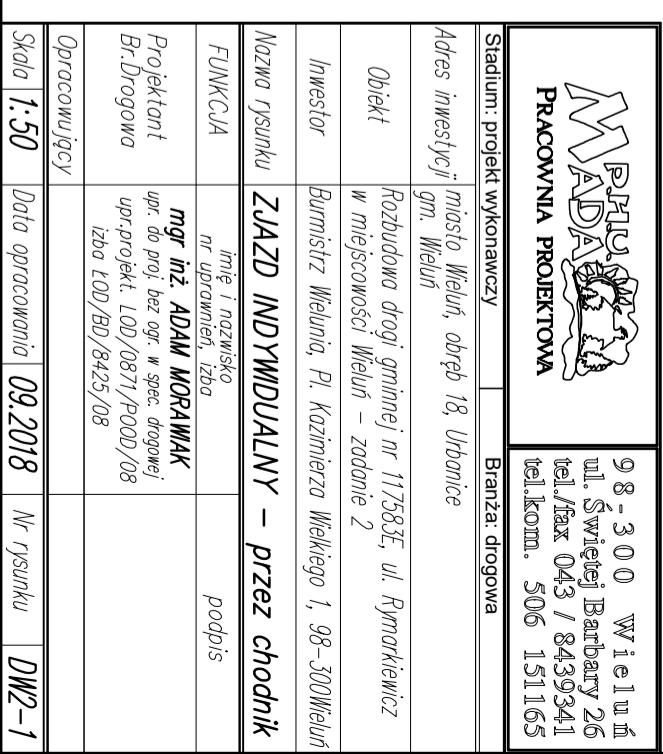 P.H.U.
MADA
PRACOWNIA PROJEKTOWA
98-300 Wieluń
ul. Świętej Barbary 26
tel./fax 043 / 8439341
tel.kom. 506 151165
Stadium: projekt wykonawczy
Branża: drogowa
Adres inwestycji
miasto Wieluń, obręb 18, Urbanice
gm. Wieluń
Obiekt
Rozbudowa drogi gminnej nr 117583E, ul. Rymarkiewicz
w miejscowości Wieluń – zadanie 2
Inwestor
Burmistrz Wielunia, Pl. Kazimierza Wielkiego 1, 98-300Wieluń
Nazwa rysunku
ZJAZD INDYWIDUALNY – przez chodnik
FUNKCJA
imię i nazwisko
nr uprawnień, izba
podpis
Projektant
Br.Drogowa
mgr inż. ADAM MORAWIAK
upr. do proj. bez ogr. w spec. drogowej
upr.projekt. LOD/0871/POOD/08
izba ŁOD/BD/8425/08
Opracowujący
Skala
1:50
Data opracowania
09.2018
Nr rysunku
DW2-1